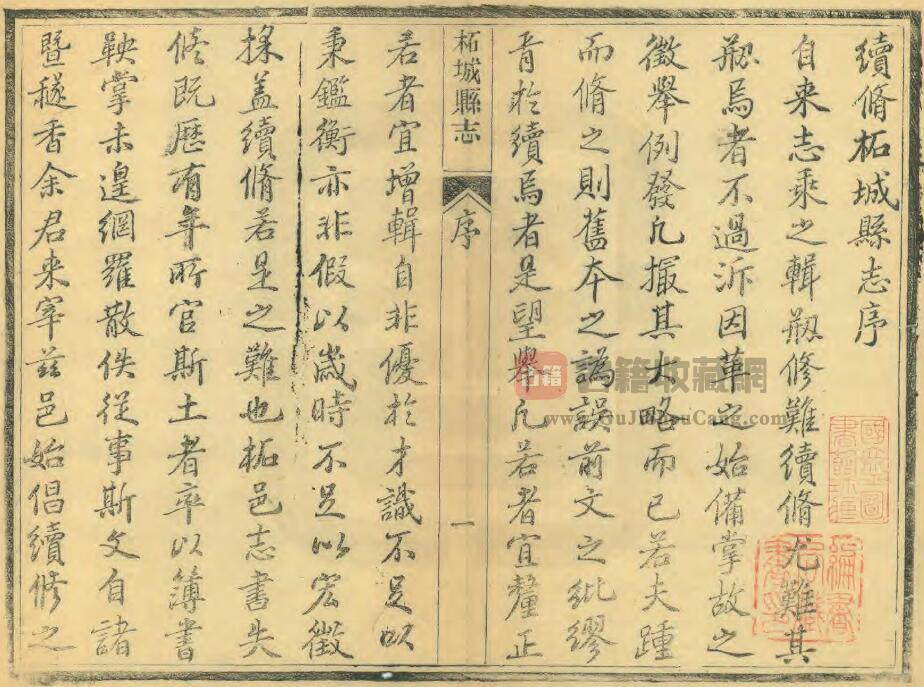 續脩柘城縣志序
自来志乘之輯剏修難續脩尤難其
剏焉者不過泝因革之始備掌故之
徵舉例發凡撮其大略而已若夫踵
而脩之則舊夲之譌誤前文之紕繆
胥於續焉者是望舉凡若者宜釐正
柘城縣志
序
一
若者宜增輯自非優於才識不足以
秉鑑衡亦非假以歲時不足以宏徵
採盖續脩若是之難也柘邑志書失
修既歷有年所官斯土者卒以簿書
鞅掌未遑網羅散佚從事斯文自諸
暨䅁香余君来宰茲邑始倡續修之
古籍收藏網
www.GuJiShouCang.com